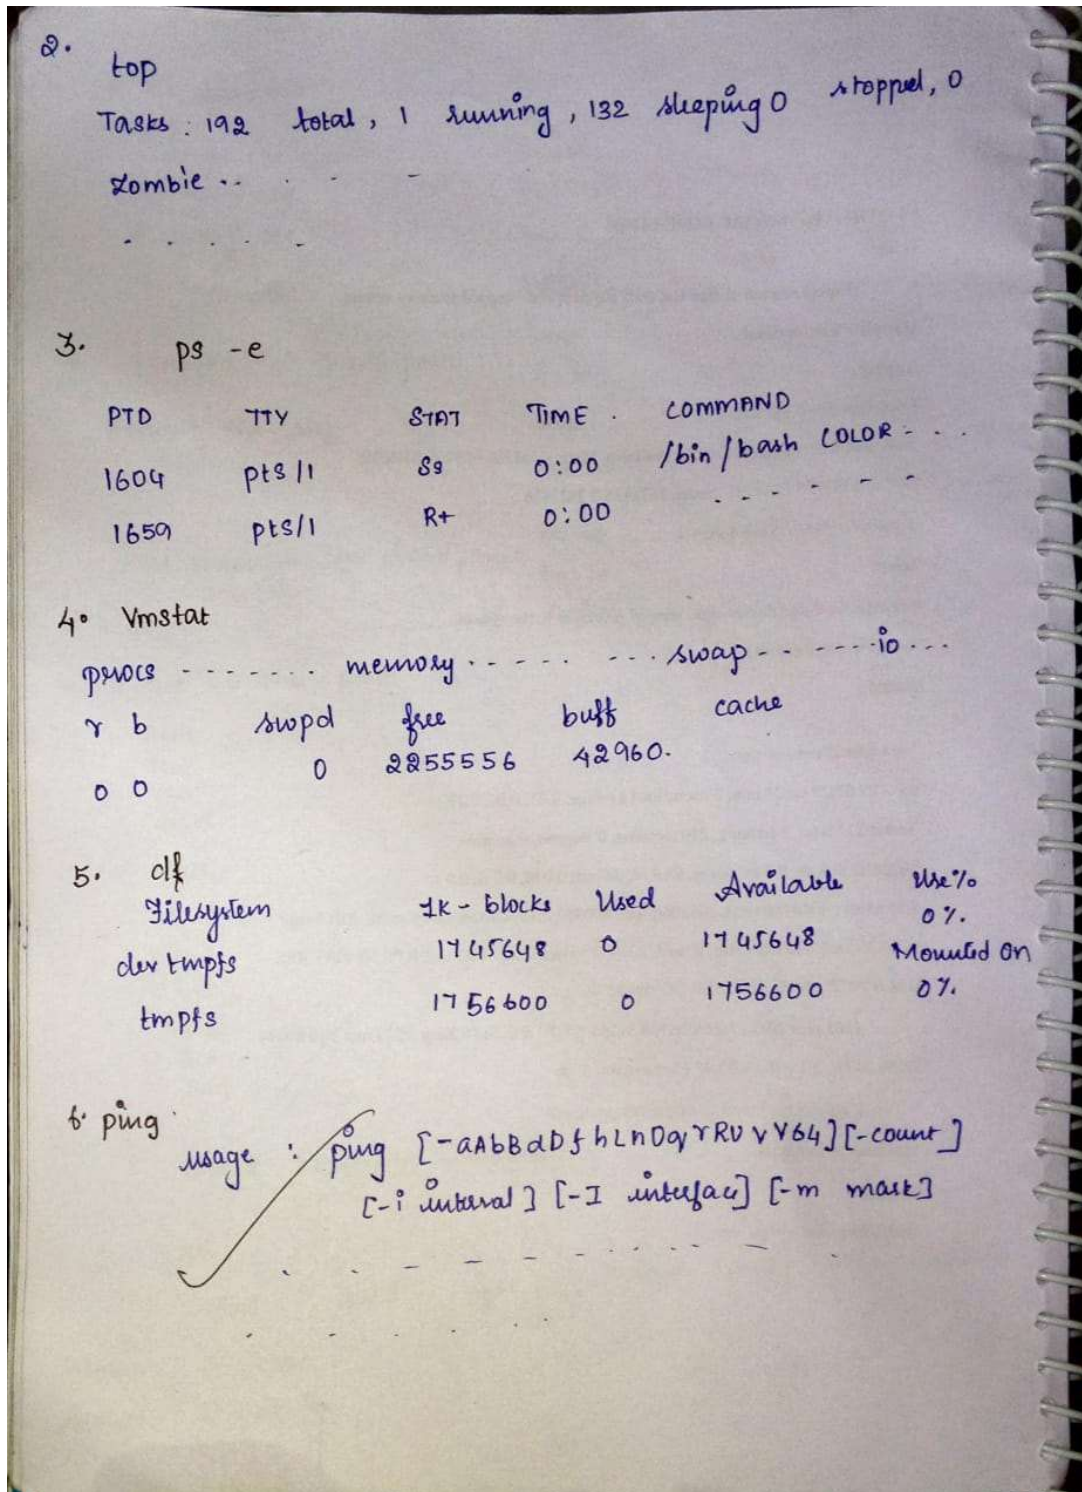 2.
top
Tasks : 192 total, 1 running, 132 sleeping 0 stopped, 0
zombie .. . - -
. . . . .
3. ps -e
PID TTY STAT TIME . COMMAND
1604 pts/1 Ss 0:00 /bin/bash COLOR - . .
1659 pts/1 R+ 0:00 . - - - - - -
4. Vmstat
procs - - - - . . . memory . . - - . . - - . . swap - - - - - - - io ...
r b swpd free buff cache
0 0 0 2255556 42960.
5. df
Filesystem 1k - blocks Used Available Use%
0%.
dev tmpfs 1745648 0 1745648 Mounted On
tmpfs 1756600 0 1756600 0%.
6. ping
usage : ping [-aAbBdDfhLnOqrRUvV64] [-count]
[-i interval] [-I interface] [-m mark]
. . - - - - - - - - - .
. . . . . .